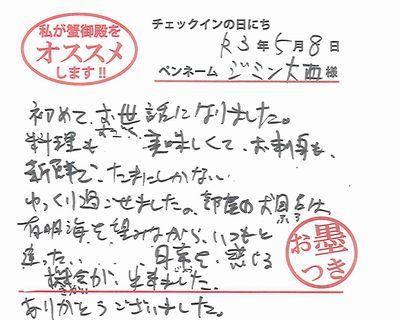 私が蟹御殿を
オススメ
します!!
チェックインの日にち
R3年5月8日
ペンネーム ジミン大西様
初めてお世話になりました。
料理も すごく 美味しくて、お刺身も、
新鮮で、たまにしかない
ゆっくり過ごせました。部屋の
有明海を望みながら、いつもと
違った 日常を、感じる
機会が、生まれました。
ありがとうございました。
お墨
つき